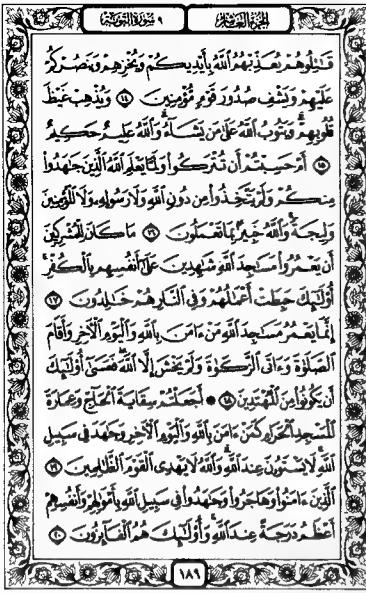 الجزء العاشر
٩ سورة التوبة
قَٰتِلُوهُمْ يُعَذِّبْهُمُ ٱللَّهُ بِأَيْدِيكُمْ وَيُخْزِهِمْ وَيَنصُرْكُمْ
عَلَيْهِمْ وَيَشْفِ صُدُورَ قَوْمٍ مُّؤْمِنِينَ ١٤ وَيُذْهِبْ غَيْظَ
قُلُوبِهِمْ وَيَتُوبُ ٱللَّهُ عَلَىٰ مَن يَشَآءُ وَٱللَّهُ عَلِيمٌ حَكِيمٌ
١٥ أَمْ حَسِبْتُمْ أَن تُتْرَكُوا۟ وَلَمَّا يَعْلَمِ ٱللَّهُ ٱلَّذِينَ جَٰهَدُوا۟
مِنكُمْ وَلَمْ يَتَّخِذُوا۟ مِن دُونِ ٱللَّهِ وَلَا رَسُولِهِۦ وَلَا ٱلْمُؤْمِنِينَ
وَلِيجَةً وَٱللَّهُ خَبِيرٌۢ بِمَا تَعْمَلُونَ ١٦ مَا كَانَ لِلْمُشْرِكِينَ
أَن يَعْمُرُوا۟ مَسَٰجِدَ ٱللَّهِ شَٰهِدِينَ عَلَىٰٓ أَنفُسِهِم بِٱلْكُفْرِ
أُو۟لَٰٓئِكَ حَبِطَتْ أَعْمَٰلُهُمْ وَفِى ٱلنَّارِ هُمْ خَٰلِدُونَ ١٧
إِنَّمَا يَعْمُرُ مَسَٰجِدَ ٱللَّهِ مَنْ ءَامَنَ بِٱللَّهِ وَٱلْيَوْمِ ٱلْءَاخِرِ وَأَقَامَ
ٱلصَّلَوٰةَ وَءَاتَى ٱلزَّكَوٰةَ وَلَمْ يَخْشَ إِلَّا ٱللَّهَ فَعَسَىٰٓ أُو۟لَٰٓئِكَ
أَن يَكُونُوا۟ مِنَ ٱلْمُهْتَدِينَ ١٨ ۞ أَجَعَلْتُمْ سِقَايَةَ ٱلْحَآجِّ وَعِمَارَةَ
ٱلْمَسْجِدِ ٱلْحَرَامِ كَمَنْ ءَامَنَ بِٱللَّهِ وَٱلْيَوْمِ ٱلْءَاخِرِ وَجَٰهَدَ فِى سَبِيلِ
ٱللَّهِ لَا يَسْتَوُۥنَ عِندَ ٱللَّهِ وَٱللَّهُ لَا يَهْدِى ٱلْقَوْمَ ٱلظَّٰلِمِينَ ١٩
ٱلَّذِينَ ءَامَنُوا۟ وَهَاجَرُوا۟ وَجَٰهَدُوا۟ فِى سَبِيلِ ٱللَّهِ بِأَمْوَٰلِهِمْ وَأَنفُسِهِمْ
أَعْظَمُ دَرَجَةً عِندَ ٱللَّهِ وَأُو۟لَٰٓئِكَ هُمُ ٱلْفَآئِزُونَ ٢٠
١٨٩